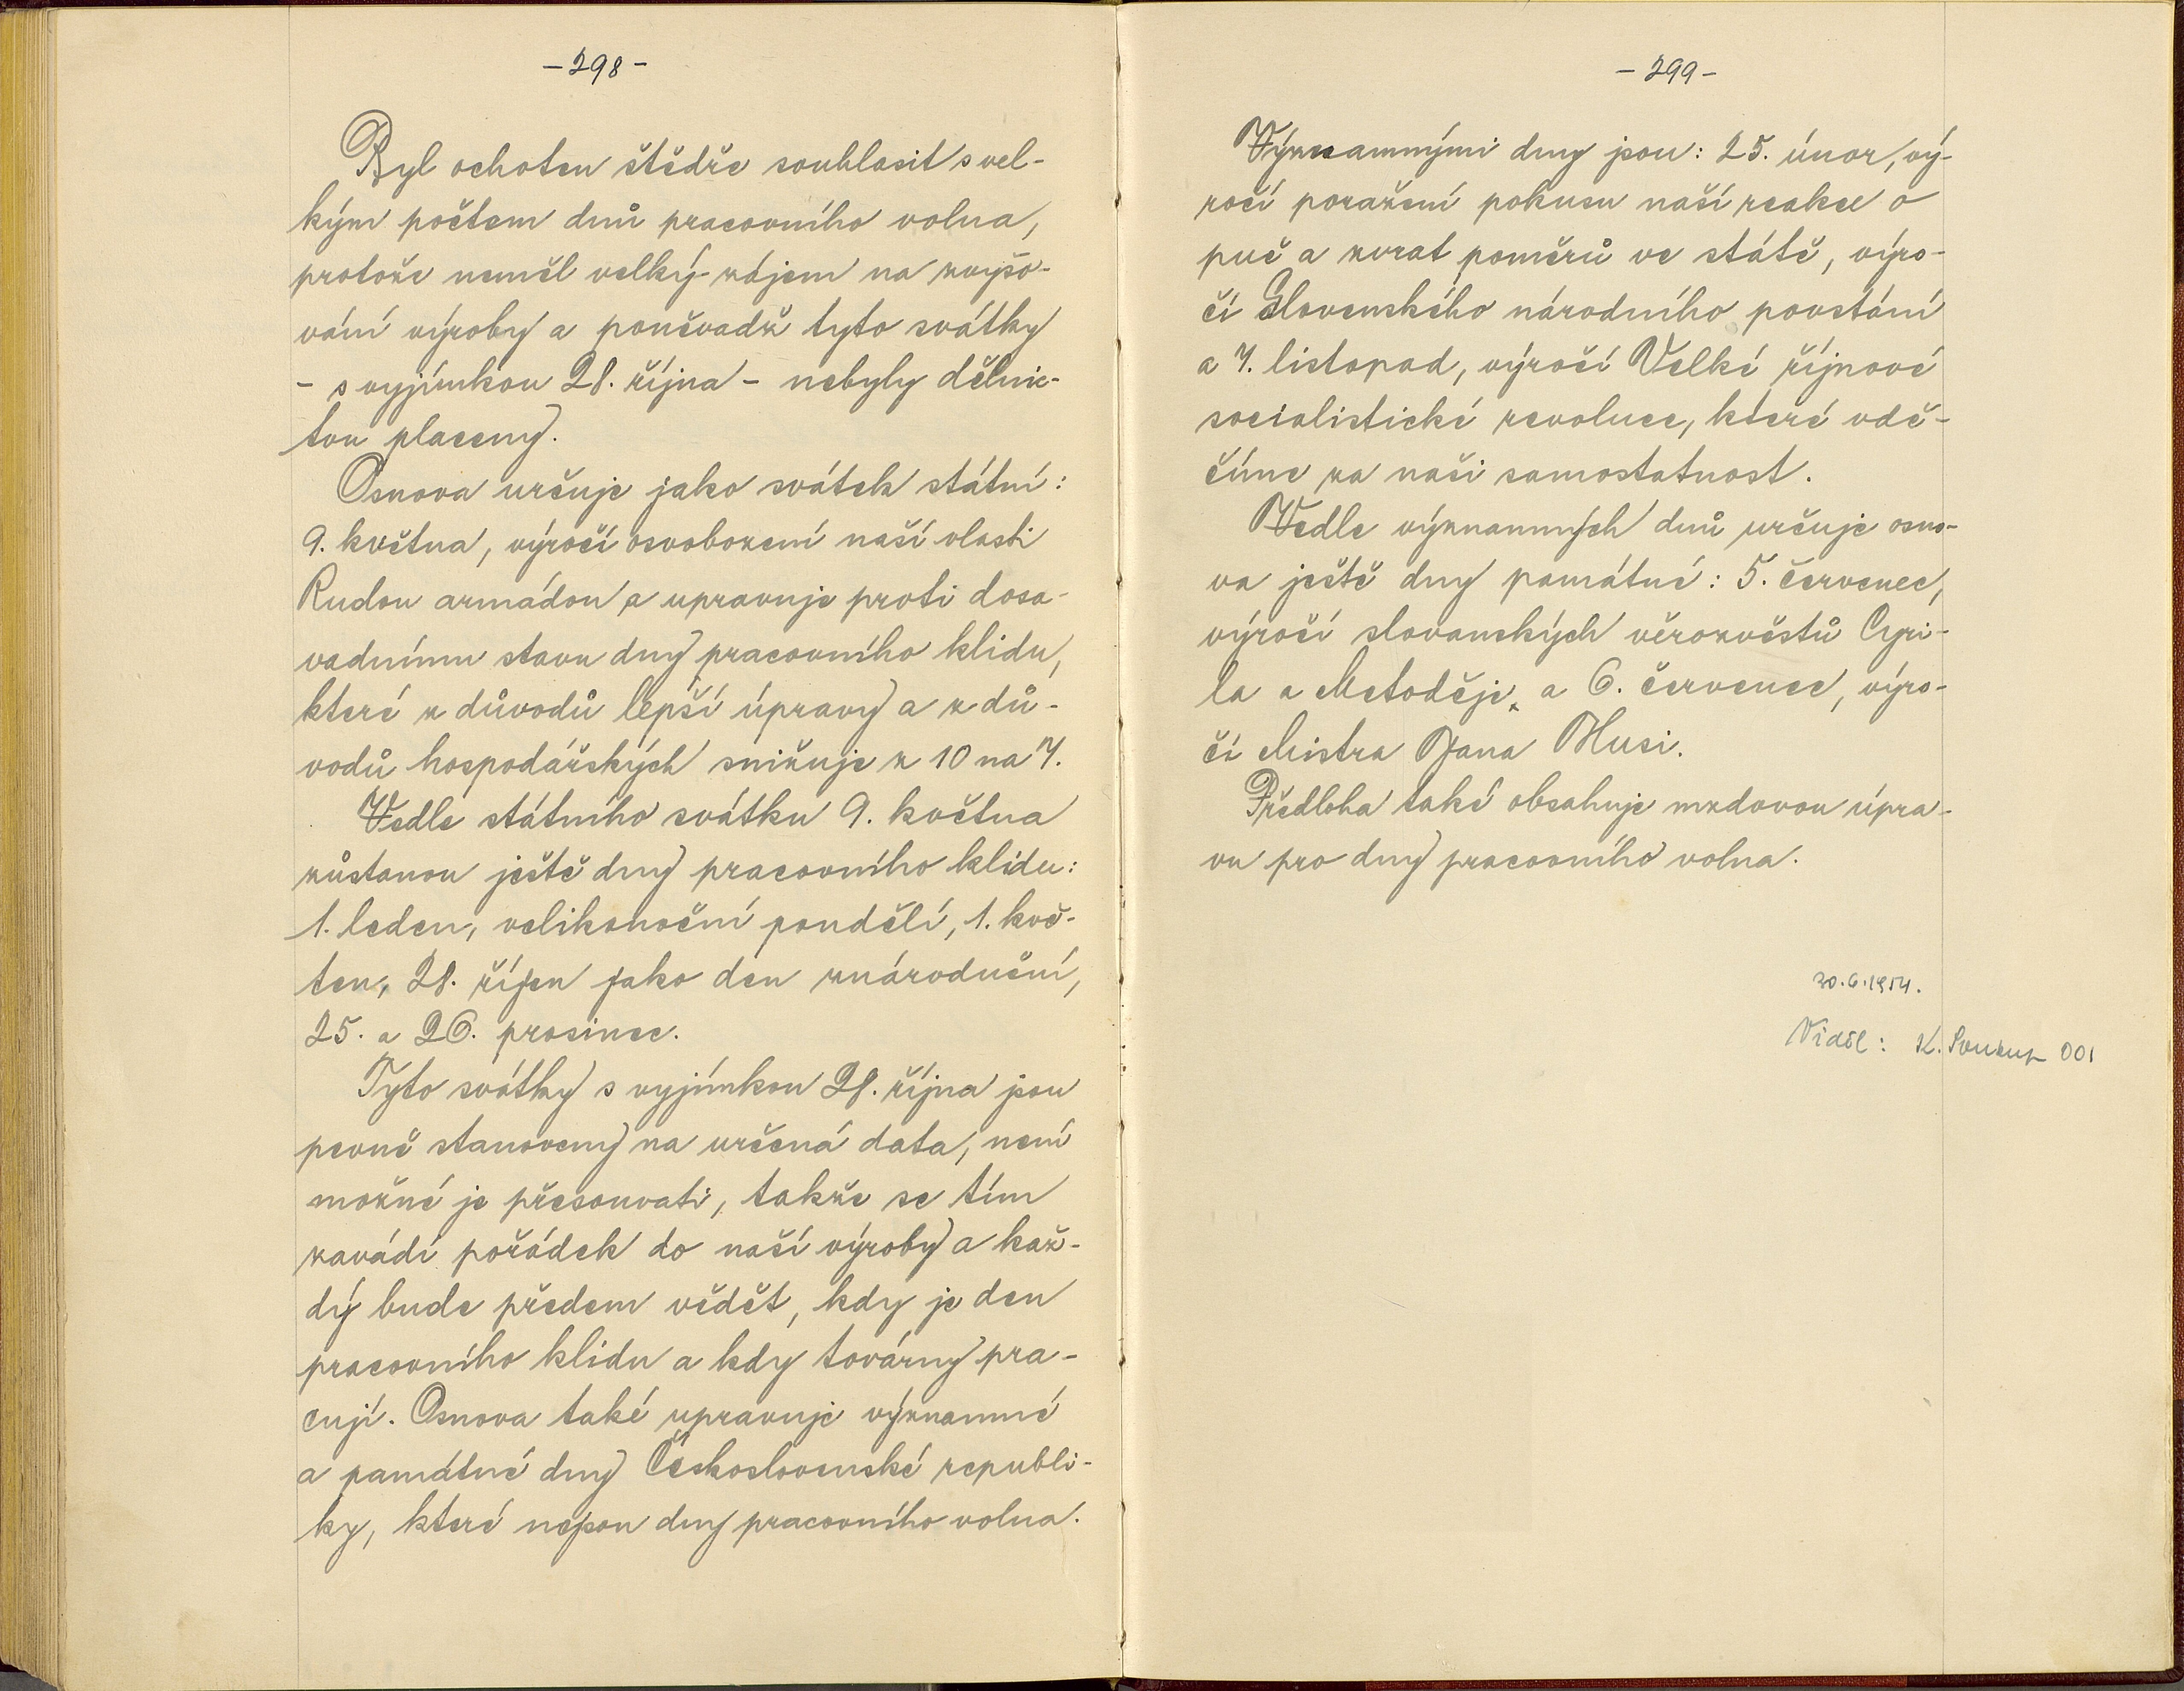 -298-
Byl ochoten štědře souhlasit s vel-
kým počtem dnů pracovního volna,
protože neměl velký zájem na zvyšo-
vání výroby a poněvadž tyto svátky
- s vyjímkou 28. října - nebyly dělnic-
tvu placeny.
Osnova určuje jako svátek státní:
9. května, výročí osvobození naší vlasti
Rudou armádou a upravuje proti dosa-
vadnímu stavu dny pracovního klidu,
které z důvodů lepší úpravy a z dů-
vodů hospodářských snižuje z 10 na 7.
Vedle státního svátku 9. května
zůstanou ještě dny pracovního klidu:
1. leden, velikonoční pondělí, 1. kvě-
ten, 28. říjen jako den znárodnění,
25. a 26. prosinec.
Tyto svátky s vyjímkou 28. října jsou
pevně stanoveny na určená data, není
možné je přesouvati, takže se tím
zavádí pořádek do naší výroby a kaž-
dý bude předem vědět, kdy je den
pracovního klidu a kdy továrny pra-
cují. Osnova také upravuje významné
a památné dny Československé republi-
ky, které nejsou dny pracovního volna.
-299-
Významnými dny jsou: 25. únor, vý-
ročí poražení pokusu naší reakce o
puč a zvrat poměrů ve státě, výro-
čí Slovenského národního povstání
a 7. listopad, výročí Velké říjnové
socialistické revoluce, které vdě-
číme za naši samostatnost.
Vedle významných dnů určuje osno-
va ještě dny památné: 5. červenec,
výročí slovanských věrozvěstů Cyri-
la a Metoděje, a 6. červenec, výro-
čí Mistra Jana Husi.
Předloha také obsahuje mzdovou úpra-
vu pro dny pracovního volna.
30.6.1954.
Viděl: K. Soukup